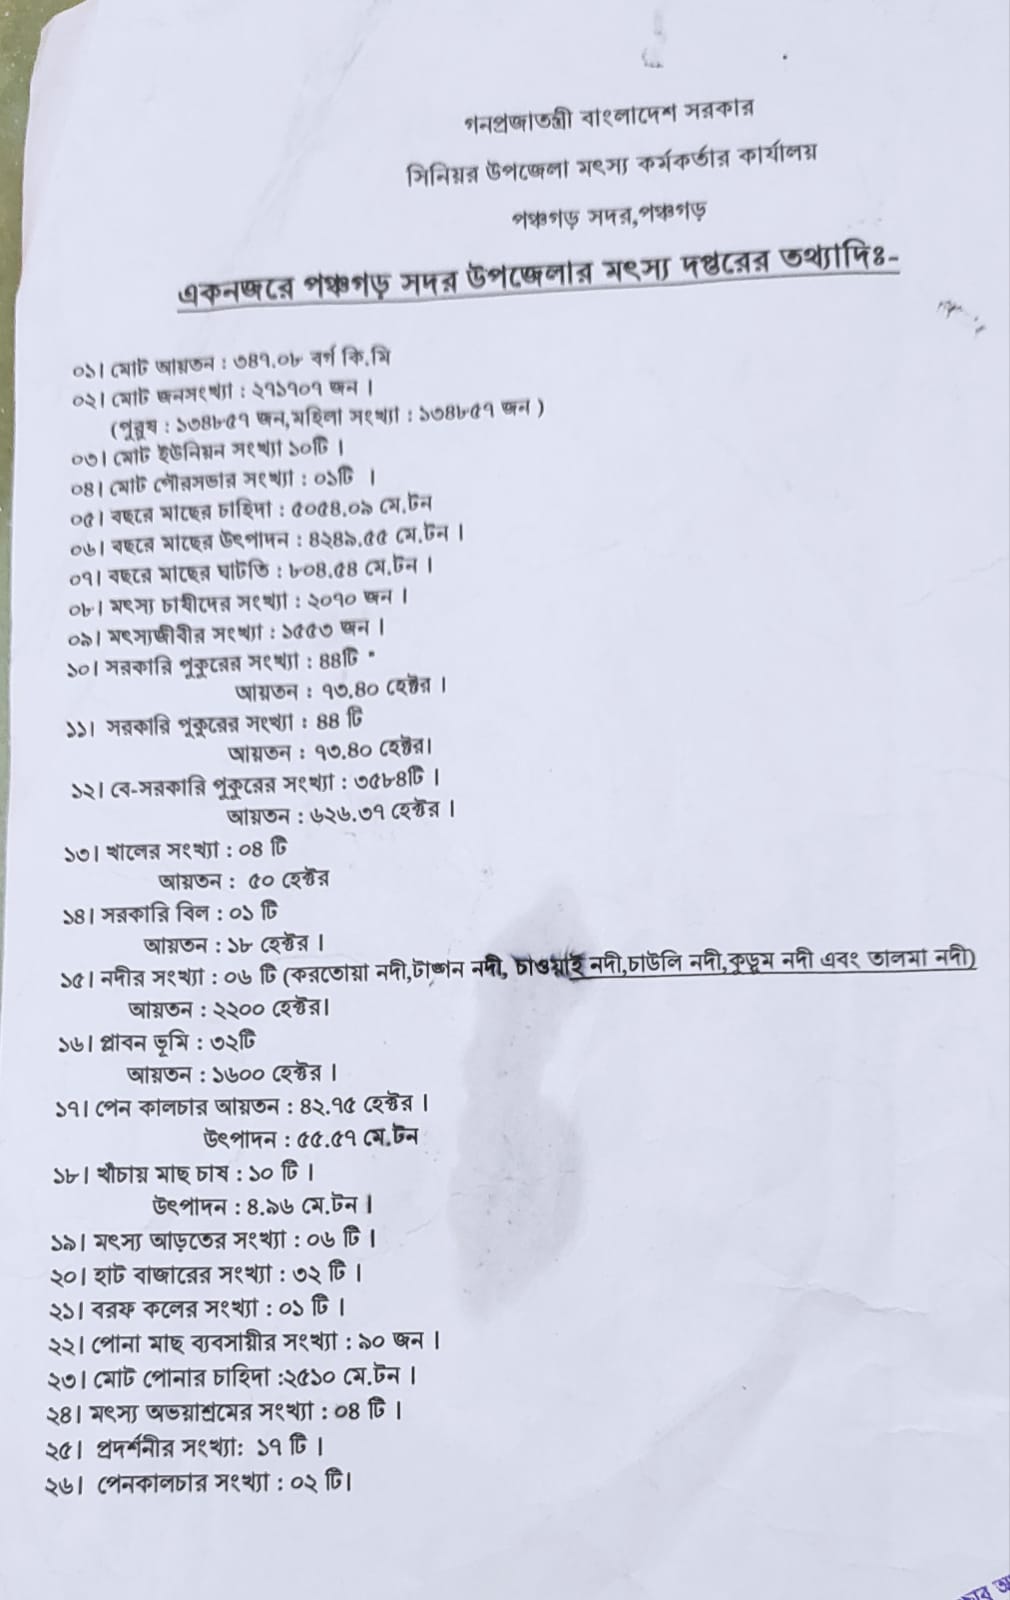 গনপ্রজাতন্ত্রী বাংলাদেশ সরকার
সিনিয়র উপজেলা মৎস্য কর্মকর্তার কার্যালয়
পঞ্চগড় সদর,পঞ্চগড়
একনজরে পঞ্চগড় সদর উপজেলার মৎস্য দপ্তরের তথ্যাদিঃ-
০১। মোট আয়তন : ৩৪৭.০৮ বর্গ কি.মি
০২। মোট জনসংখ্যা : ২৭১৭০৭ জন ।
(পুরুষ : ১৩৪৮৫৭ জন,মহিলা সংখ্যা : ১৩৪৮৫৭ জন )
০৩। মোট ইউনিয়ন সংখ্যা ১০টি ।
০৪। মোট পৌরসভার সংখ্যা : ০১টি ।
০৫। বছরে মাছের চাহিদা : ৫০৫৪.০৯ মে.টন
০৬। বছরে মাছের উৎপাদন : ৪২৪৯.৫৫ মে.টন ।
০৭। বছরে মাছের ঘাটতি : ৮০৪.৫৪ মে.টন ।
০৮। মৎস্য চাষীদের সংখ্যা : ২০৭০ জন ।
০৯। মৎস্যজীবীর সংখ্যা : ১৫৫৩ জন ।
১০। সরকারি পুকুরের সংখ্যা : ৪৪টি
আয়তন : ৭৩.৪০ হেক্টর ।
১১। সরকারি পুকুরের সংখ্যা : ৪৪ টি
আয়তন : ৭৩.৪০ হেক্টর।
১২। বে-সরকারি পুকুরের সংখ্যা : ৩৫৮৪টি ।
আয়তন : ৬২৬.৩৭ হেক্টর ।
১৩। খালের সংখ্যা : ০৪ টি
আয়তন : ৫০ হেক্টর
১৪। সরকারি বিল : ০১ টি
আয়তন : ১৮ হেক্টর ।
১৫। নদীর সংখ্যা : ০৬ টি (করতোয়া নদী,টাঙ্গান নদী, চাওয়াই নদী,চাউলি নদী,কুড়ুম নদী এবং তালমা নদী)
আয়তন : ২২০০ হেক্টর।
১৬। প্লাবন ভূমি : ৩২টি
আয়তন : ১৬০০ হেক্টর ।
১৭। পেন কালচার আয়তন : ৪২.৭৫ হেক্টর ।
উৎপাদন : ৫৫.৫৭ মে.টন
১৮। খাঁচায় মাছ চাষ : ১০ টি ।
উৎপাদন : ৪.৯৬ মে.টন ।
১৯। মৎস্য আড়তের সংখ্যা : ০৬ টি ।
২০। হাট বাজারের সংখ্যা : ৩২ টি ।
২১। বরফ কলের সংখ্যা : ০১ টি ।
২২। পোনা মাছ ব্যবসায়ীর সংখ্যা : ৯০ জন ।
২৩। মোট পোনার চাহিদা :২৫১০ মে.টন ।
২৪। মৎস্য অভয়াশ্রমের সংখ্যা : ০৪ টি ।
২৫। প্রদর্শনীর সংখ্যা: ১৭ টি ।
২৬। পেনকালচার সংখ্যা : ০২ টি।